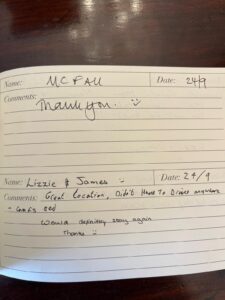 Name: MCFALL Date: 24/9
Comments:
Thank you. :)
Name: Lizzie & James :) Date: 24/9
Comments: Great Location, Didn't Have To Drive anywhere
- Comfy bed
Would definitely stay again
Thanks :)